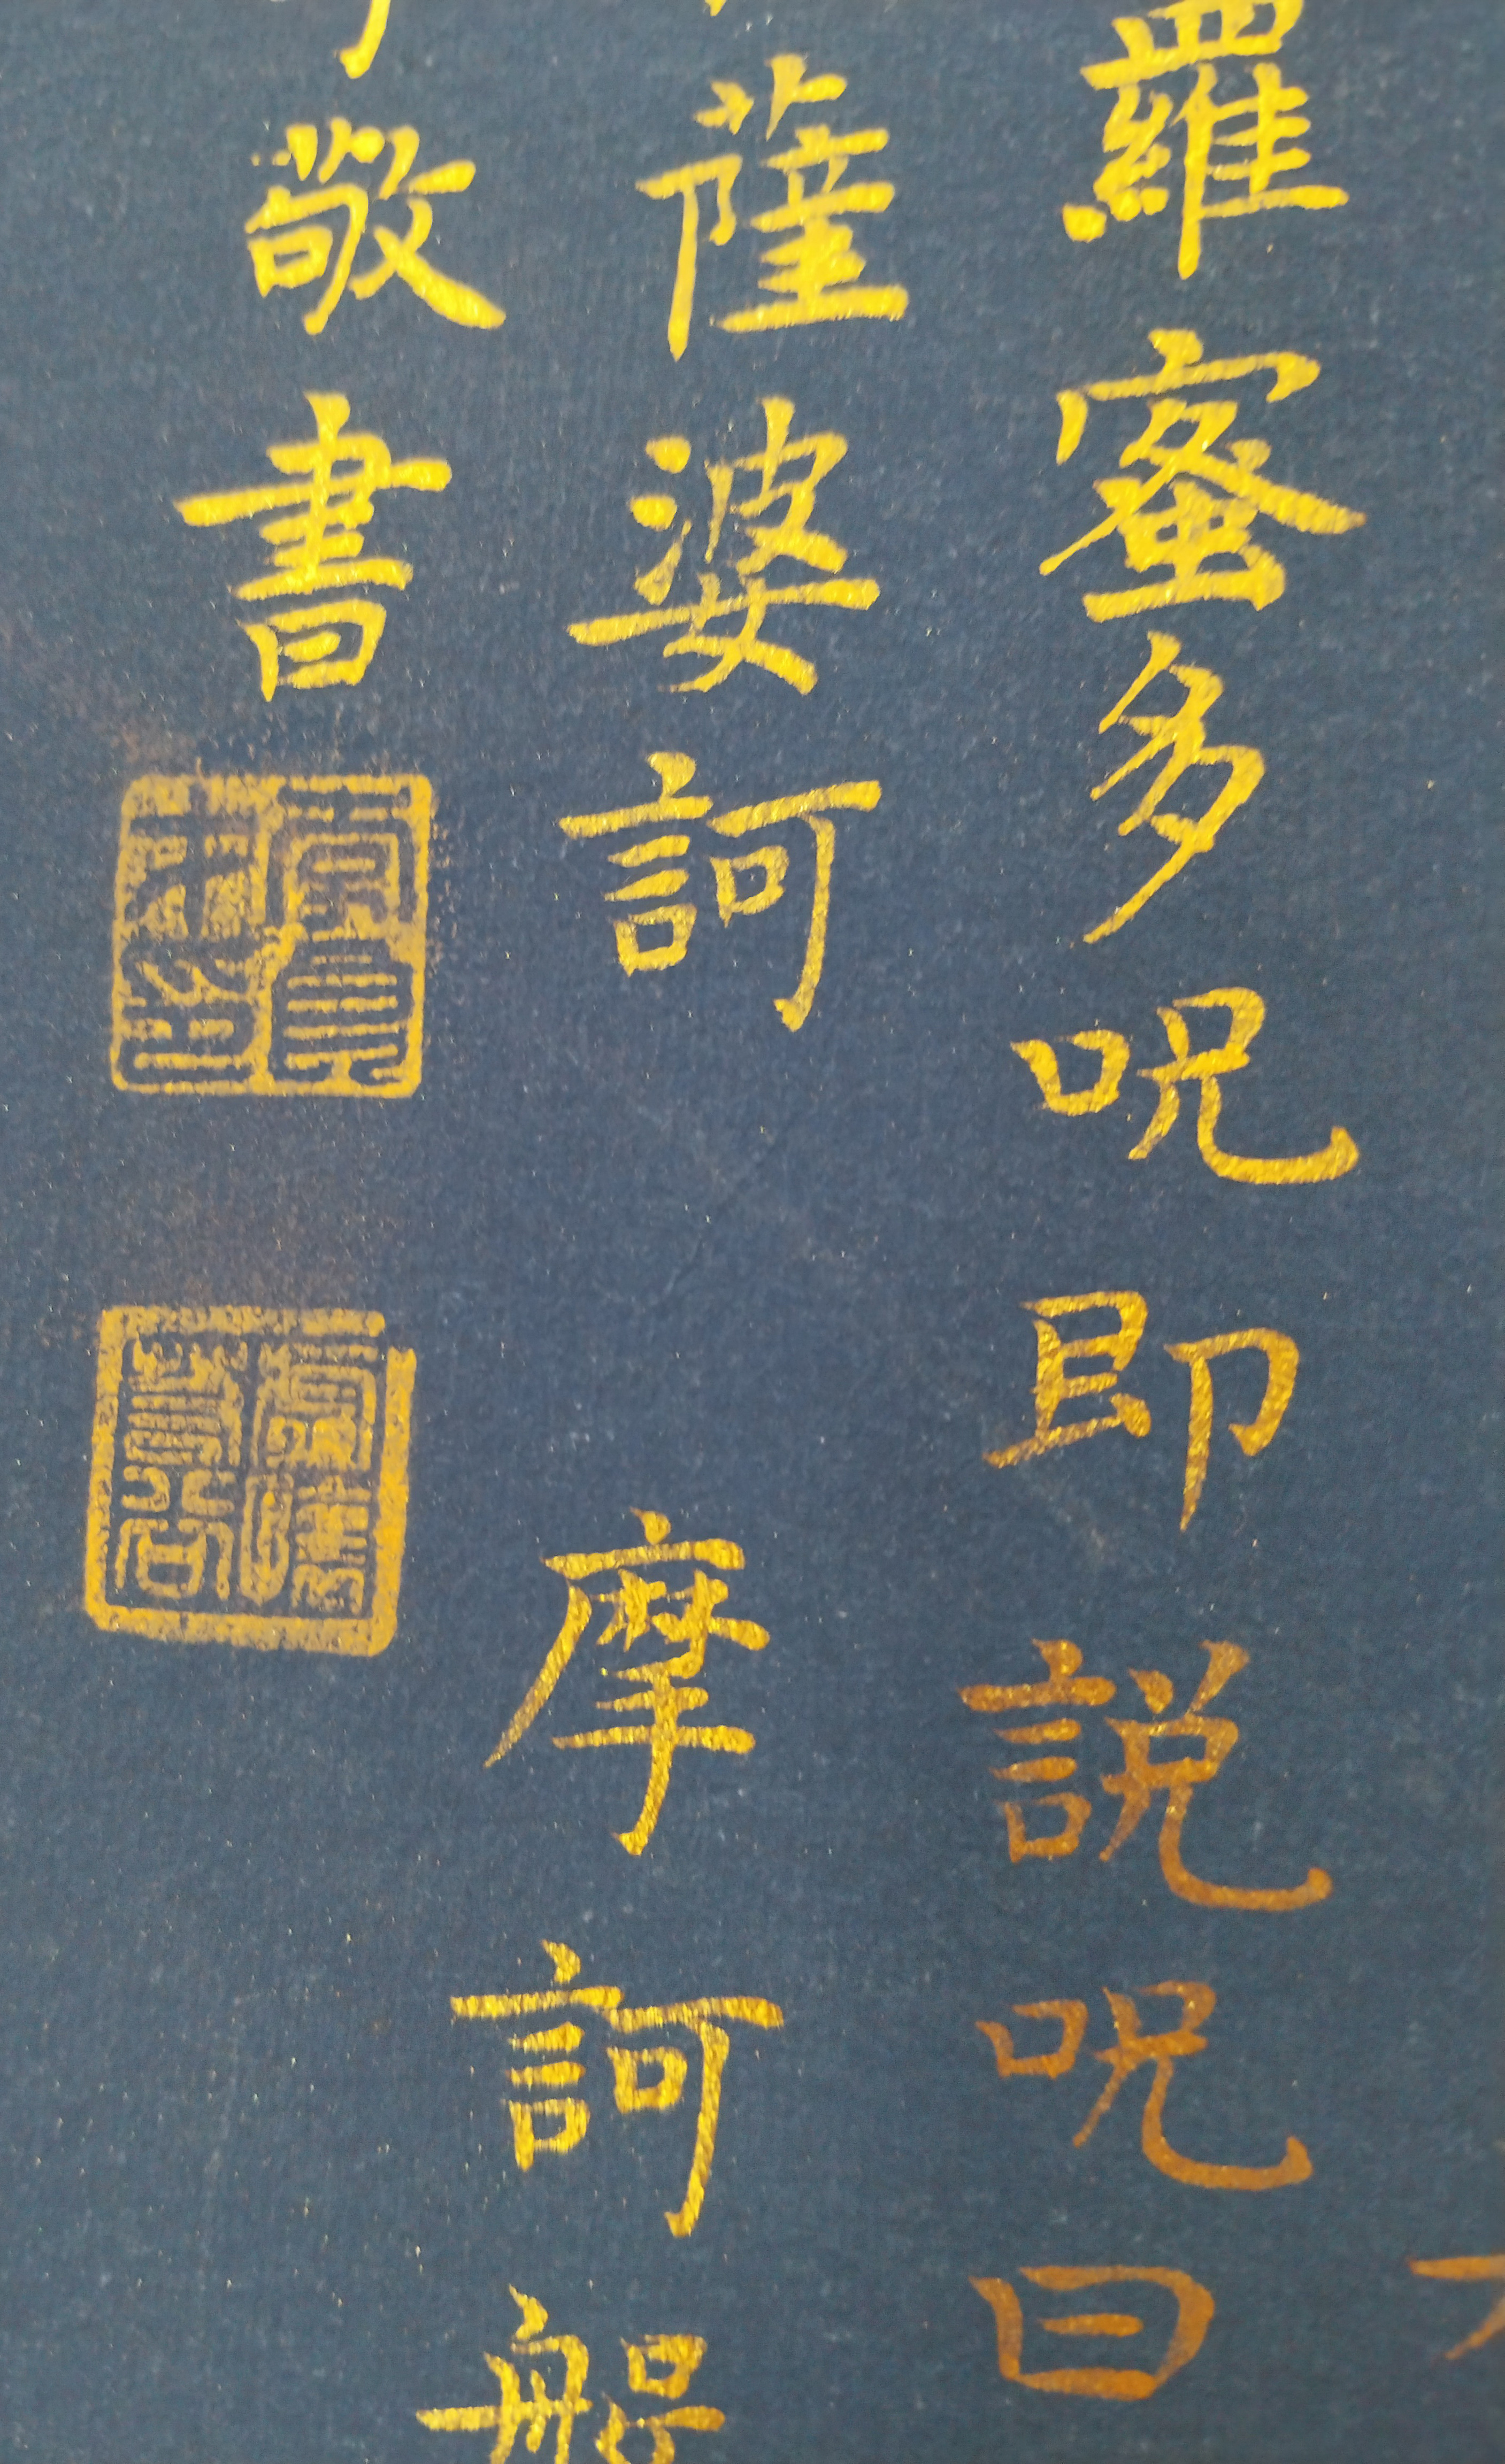 羅蜜多呪即説呪曰
薩婆訶 摩訶般
敬書